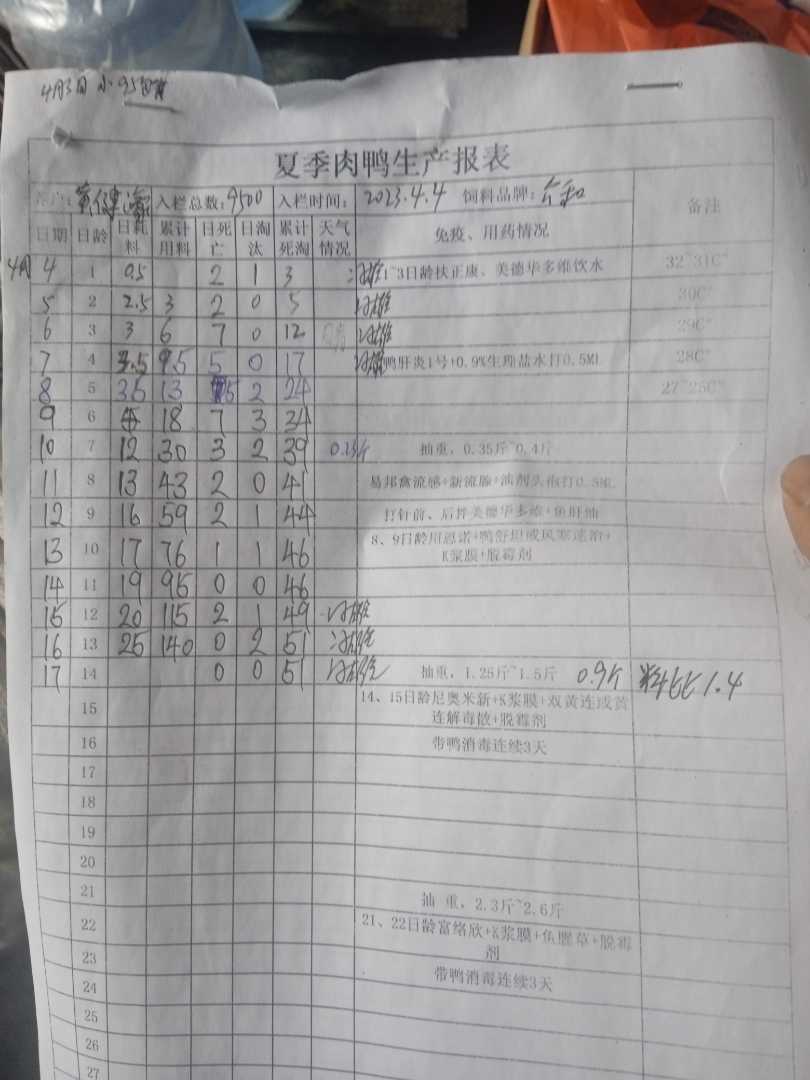 4月3日 小.9500
夏季肉鸭生产报表
入栏总数:9500 入栏时间: 2023.4.4 饲料品牌: 备注
日期 日龄 日耗料 累计用料 日死亡 日淘汰 累计死淘 天气情况 免疫、用药情况
4月 4 1 0.5 2 1 3 1~3日龄扶正康、美德华多维饮水 32~31C°
5 2 2.5 3 2 0 5 30C°
6 3 3 6 7 0 12 29C°
7 4 3.5 9.5 5 0 17 鸭肝炎1号+0.9%生理盐水打0.5ML 28C°
8 5 3.5 13 5 2 24 27~25C°
9 6 18 7 3 34
10 7 12 30 3 2 39 抽重，0.35斤~0.4斤
11 8 13 43 2 0 41 易邦禽流感+新流腺+油剂头孢打0.5ML
12 9 16 59 2 1 44 打针前、后拌美德华多维+鱼肝油
13 10 17 76 1 1 46 8、9日龄用恩诺+鸭舒坦或风寒速治+
K浆膜+脱霉剂
14 11 19 95 0 0 46
15 12 20 115 2 1 49
16 13 25 140 0 2 51
17 14 0 0 51 抽重，1.25斤~1.5斤 0.9斤 料比1.4
15 14、15日龄尼奥米新+K浆膜+双黄连或黄
连解毒散+脱霉剂
16 带鸭消毒连续3天
17
18
19
20
21 抽 重，2.3斤~2.6斤
22 21、22日龄富络欣+K浆膜+鱼腥草+脱霉
剂
23
24 带鸭消毒连续3天
25
26
27